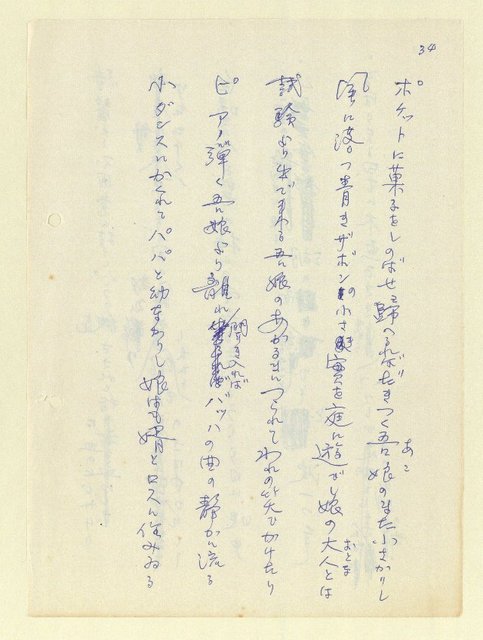 34
ポケットに菓子をしのばせ歸へればだきつく吾娘のまだ小さかりし
あこ
風に淡つ青きザボンの小さき實を庭に遊がし娘の大人とは
おとな
試験より出で来る吾娘のあかるきにつられてわれの笑ひかけたり
ピアノ弾く吾娘より離れ聞き入ればバッハの曲の静かに流る
小ダンスにかくれてパパと幼なかりし娘はも婿とロスに住みゐる